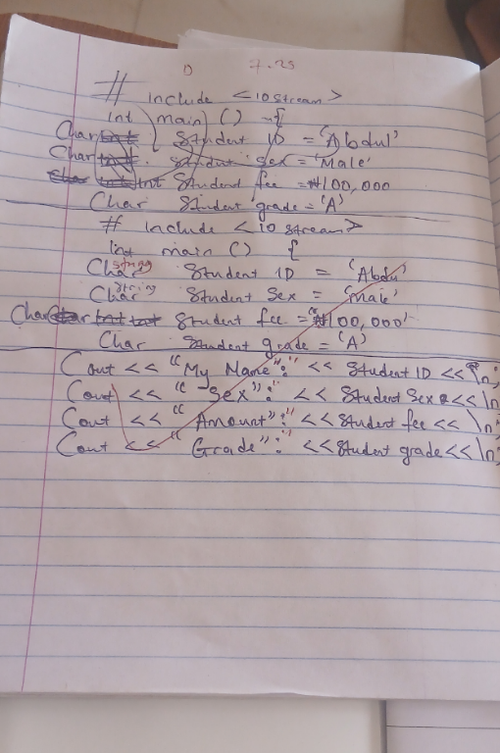 D 7.25
# include <iostream>
int main () {
Char Student ID = 'Abdul'
Char Student Sex = 'Male'
Int Student fee = ₦100,000
Char Student grade = 'A'
# include <iostream>
int main () {
Char string Student ID = 'Abdu'
Char string Student Sex = 'Male'
Char Student fee = '₦100,000'
Char Student grade = 'A'
Cout << "My Name": " << Student ID << \n;
Cout << " Sex": " << Student Sex << \n;
Cout << " Amount": " << Student fee << \n;
Cout << " Grade": " << Student grade << \n;